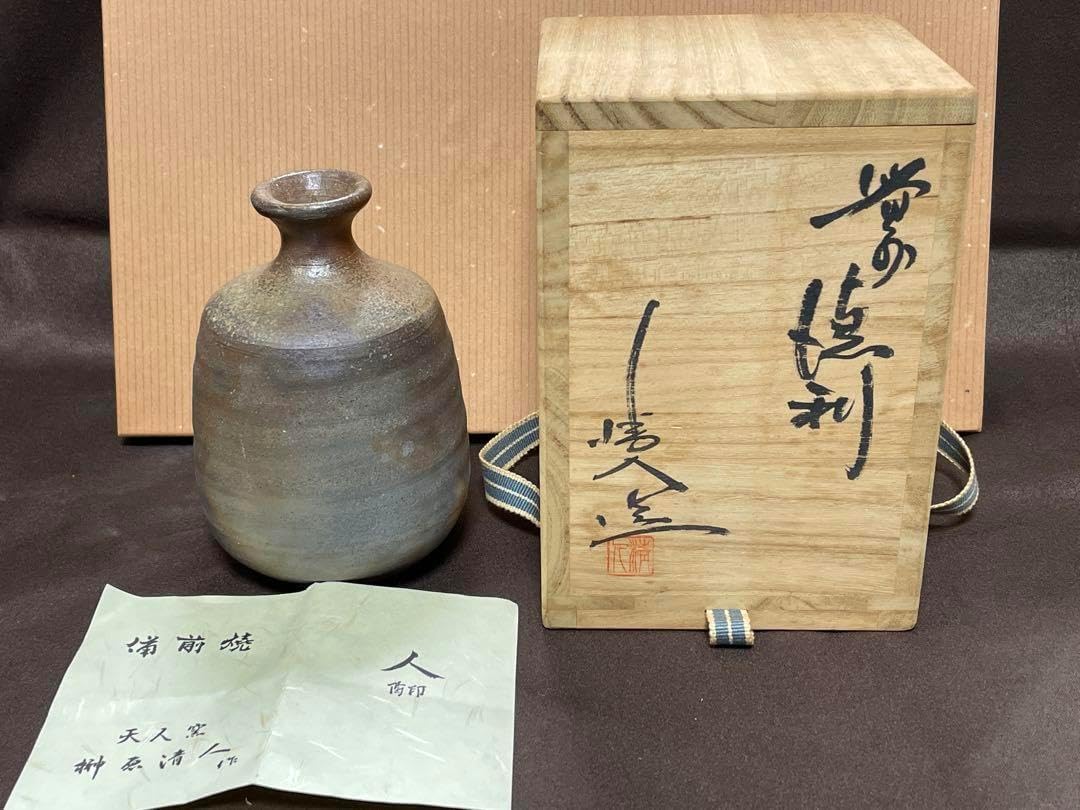 備前
徳利
清人造
清人
備前焼
天人窯
榊原清人作
人
陶印